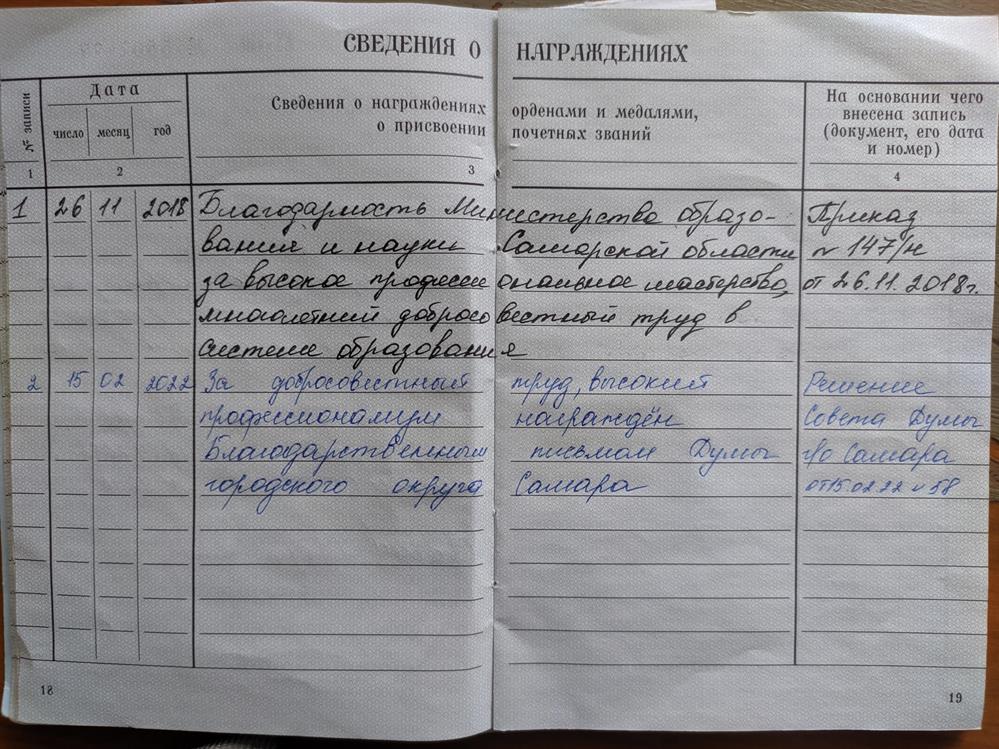 СВЕДЕНИЯ О НАГРАЖДЕНИЯХ
№ записи
Дата
число месяц год
Сведения о награждениях орденами и медалями,
о присвоении почетных званий
На основании чего
внесена запись
(документ, его дата
и номер)
1 2 3 4
1 26 11 2018 Благодарность Министерства образо- Приказ
вания и науки Самарской области № 147/н
за высокое профессиональное мастерство, от 26.11.2018г.
многолетний добросовестный труд в
системе образования
2 15 02 2022 За добросовестный труд, высокий Решение
профессионализм награждён Совета Думы
Благодарственным письмом Думы г/о Самара
городского округа Самара от 15.02.22 № 58
18 19